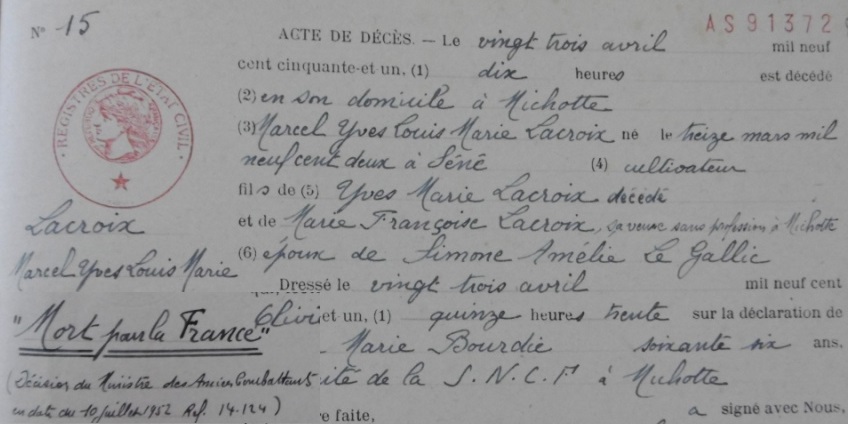 N° 15
AS 91372
ACTE DE DÉCÈS. — Le vingt trois avril mil neuf
cent cinquante-et un, (1) dix heures est décédé
(2) en son domicile à Michotte
(3) Marcel Yves Louis Marie Lacroix né le treize mars mil
neuf cent deux à Séné (4) cultivateur
fils de (5) Yves Marie Lacroix décédé
et de Marie Françoise Lacroix, sa veuve sans profession à Michotte
(6) époux de Simone Amélie Le Gallic
Dressé le vingt trois avril mil neuf cent
et un, (1) quinze heures trente sur la déclaration de
Marie Bourdic soixante six ans,
ité de la S.N.C.F à Michotte
re faite, a signé avec Nous,
REGISTRES DE L'ÉTAT CIVIL
Lacroix
Marcel Yves Louis Marie
"Mort pour la France"
(Décision du Ministre des Anciens Combattants
en date du 10 juillet 1952 Ref. 14-124)